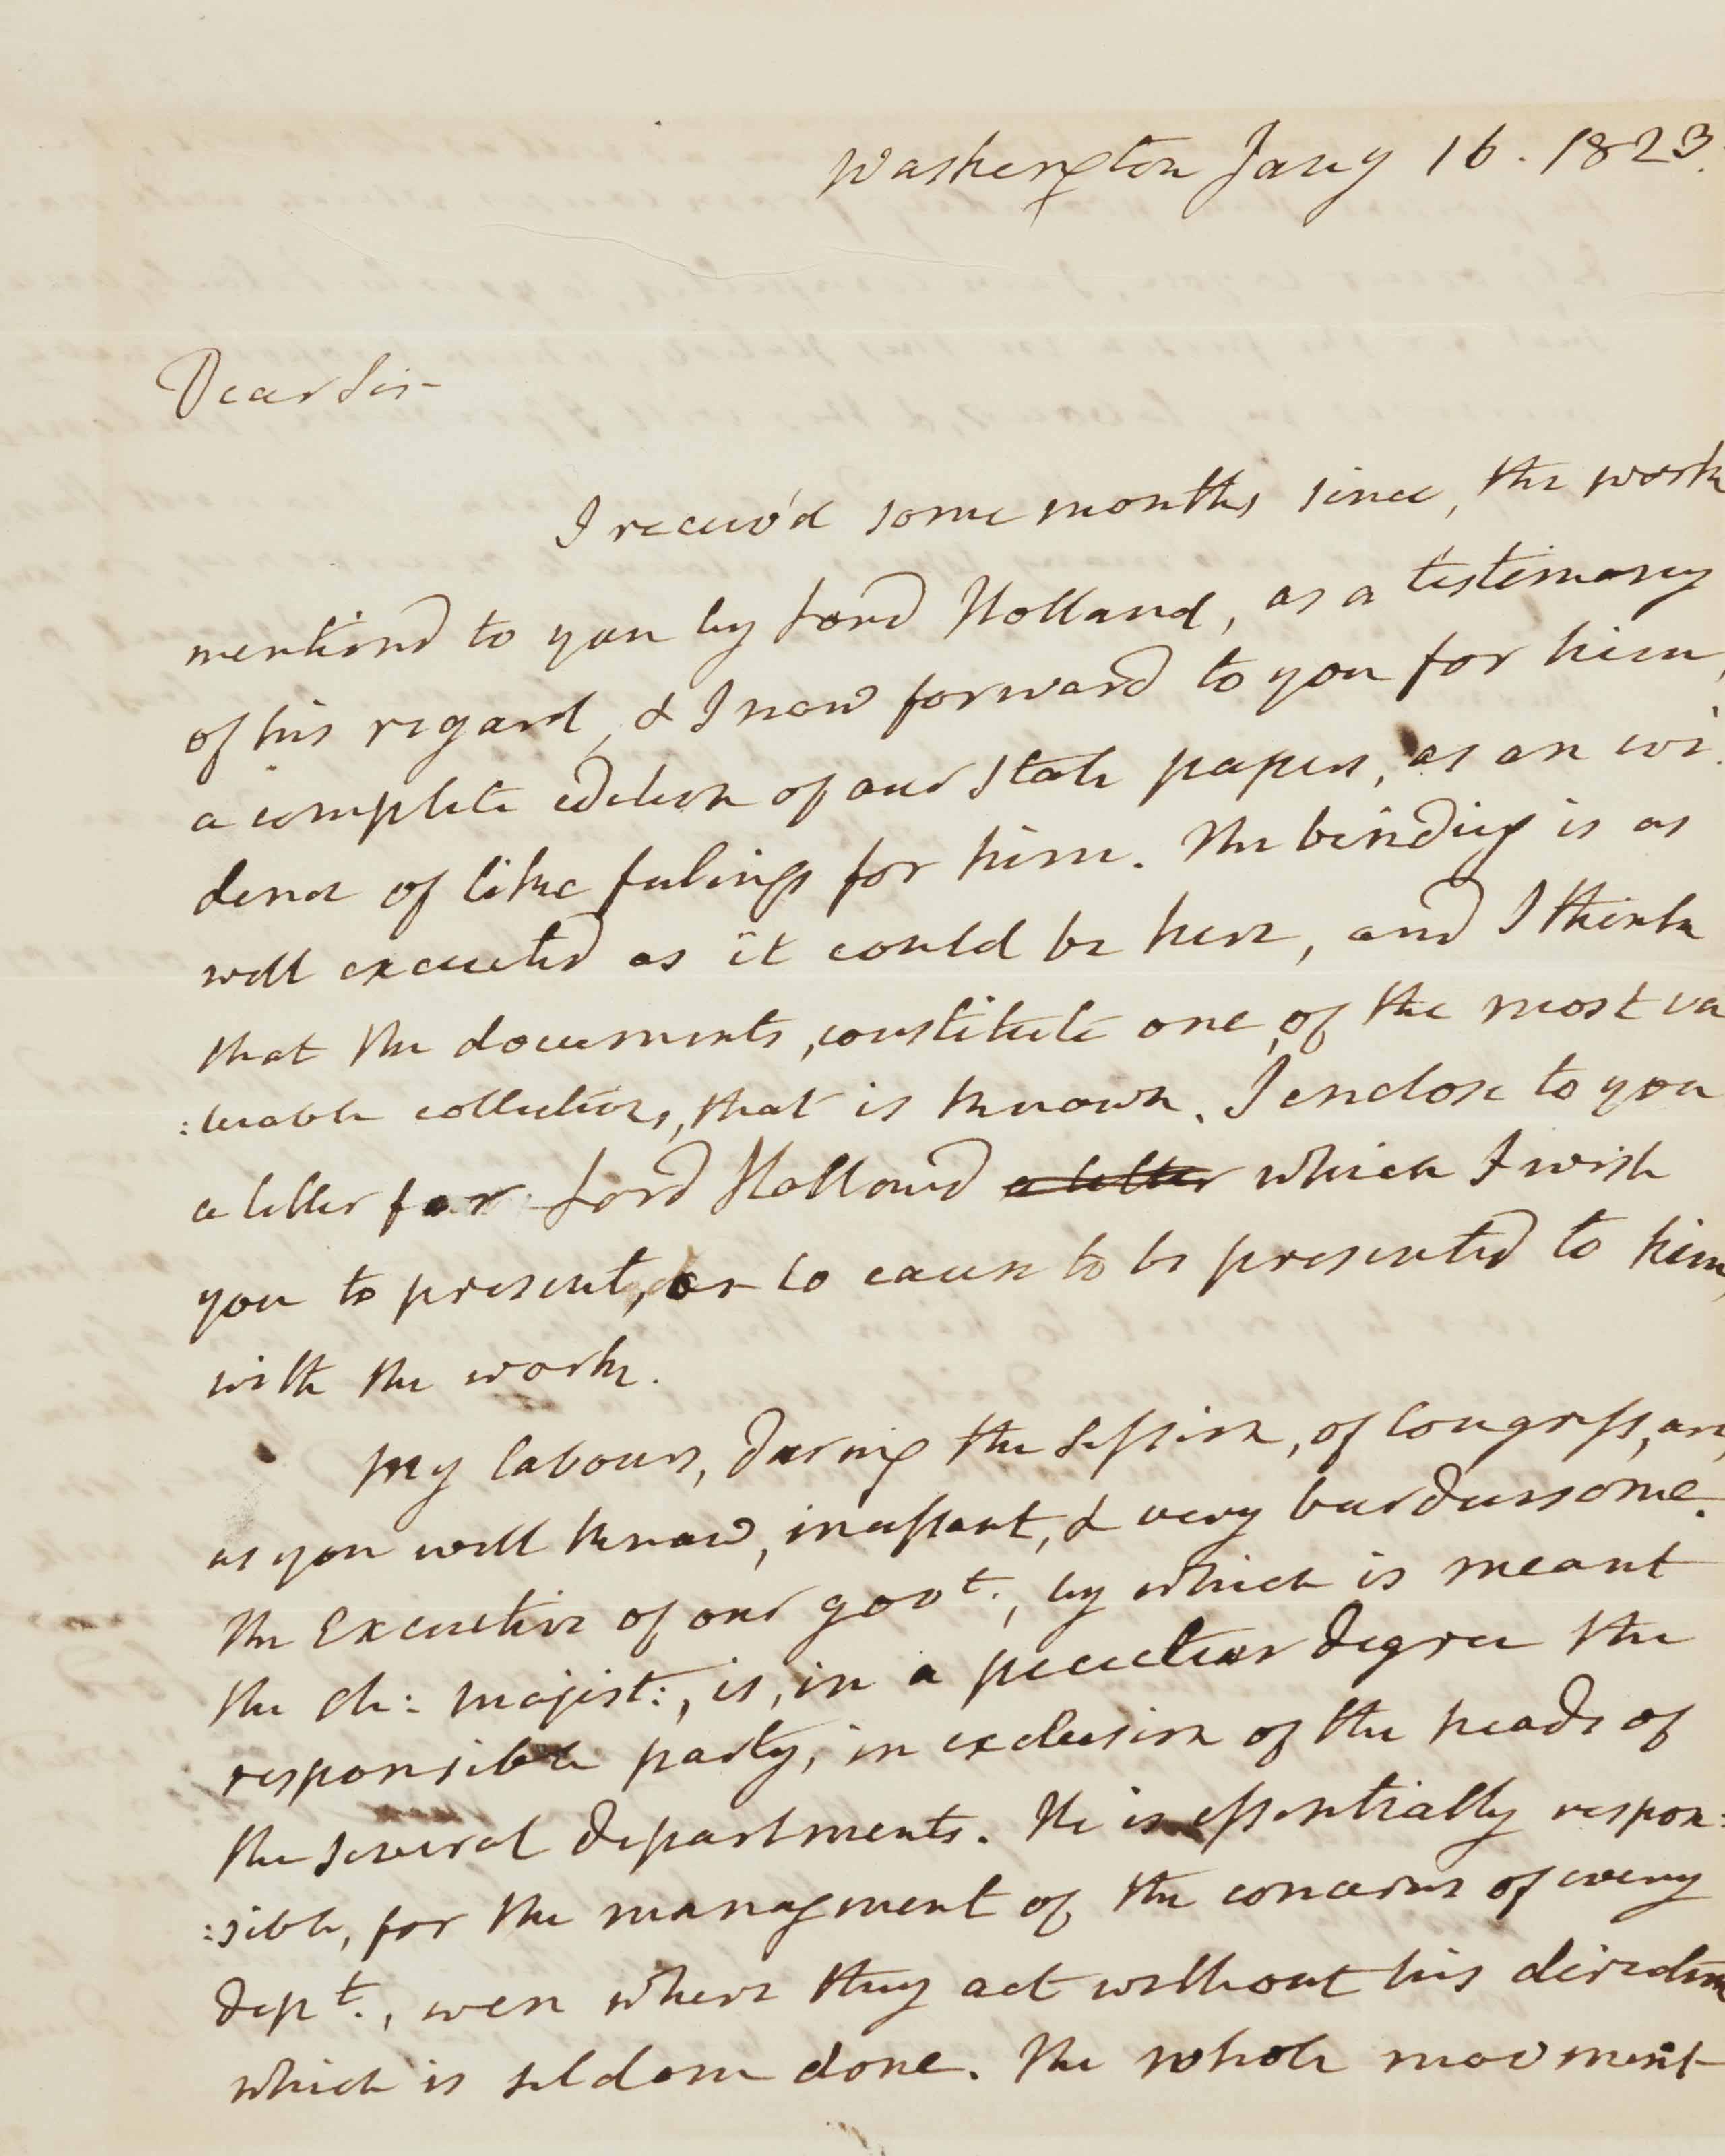 Washington Jany 16. 1823.
Dear Sir-
I receiv'd some months since, the work
mentiond to you by Lord Holland, as a testimony
of his regard, & I now forward to you for him,
a complete edition of our State papers, as an evi.
dence of like feelings for him. The binding is as
well executed as it could be here, and I think
that the documents, constitute one, of the most va
:luable collections, that is known. I enclose to you
a letter for Lord Holland a letter which I wish
you to present, or to cause to be presented to him,
with the work.
My labours, during the session, of Congress, are,
as you well know, incessant, & very burdensome.
The Executive of our govt., by which is meant
the ch: magist:, is, in a peculiar degree the
responsible party, in exclusion of the heads of
the several departments. He is essentially respon:
:sible, for the managment of the concerns of every
dept., even where they act without his direction
which is seldom done. The whole movment